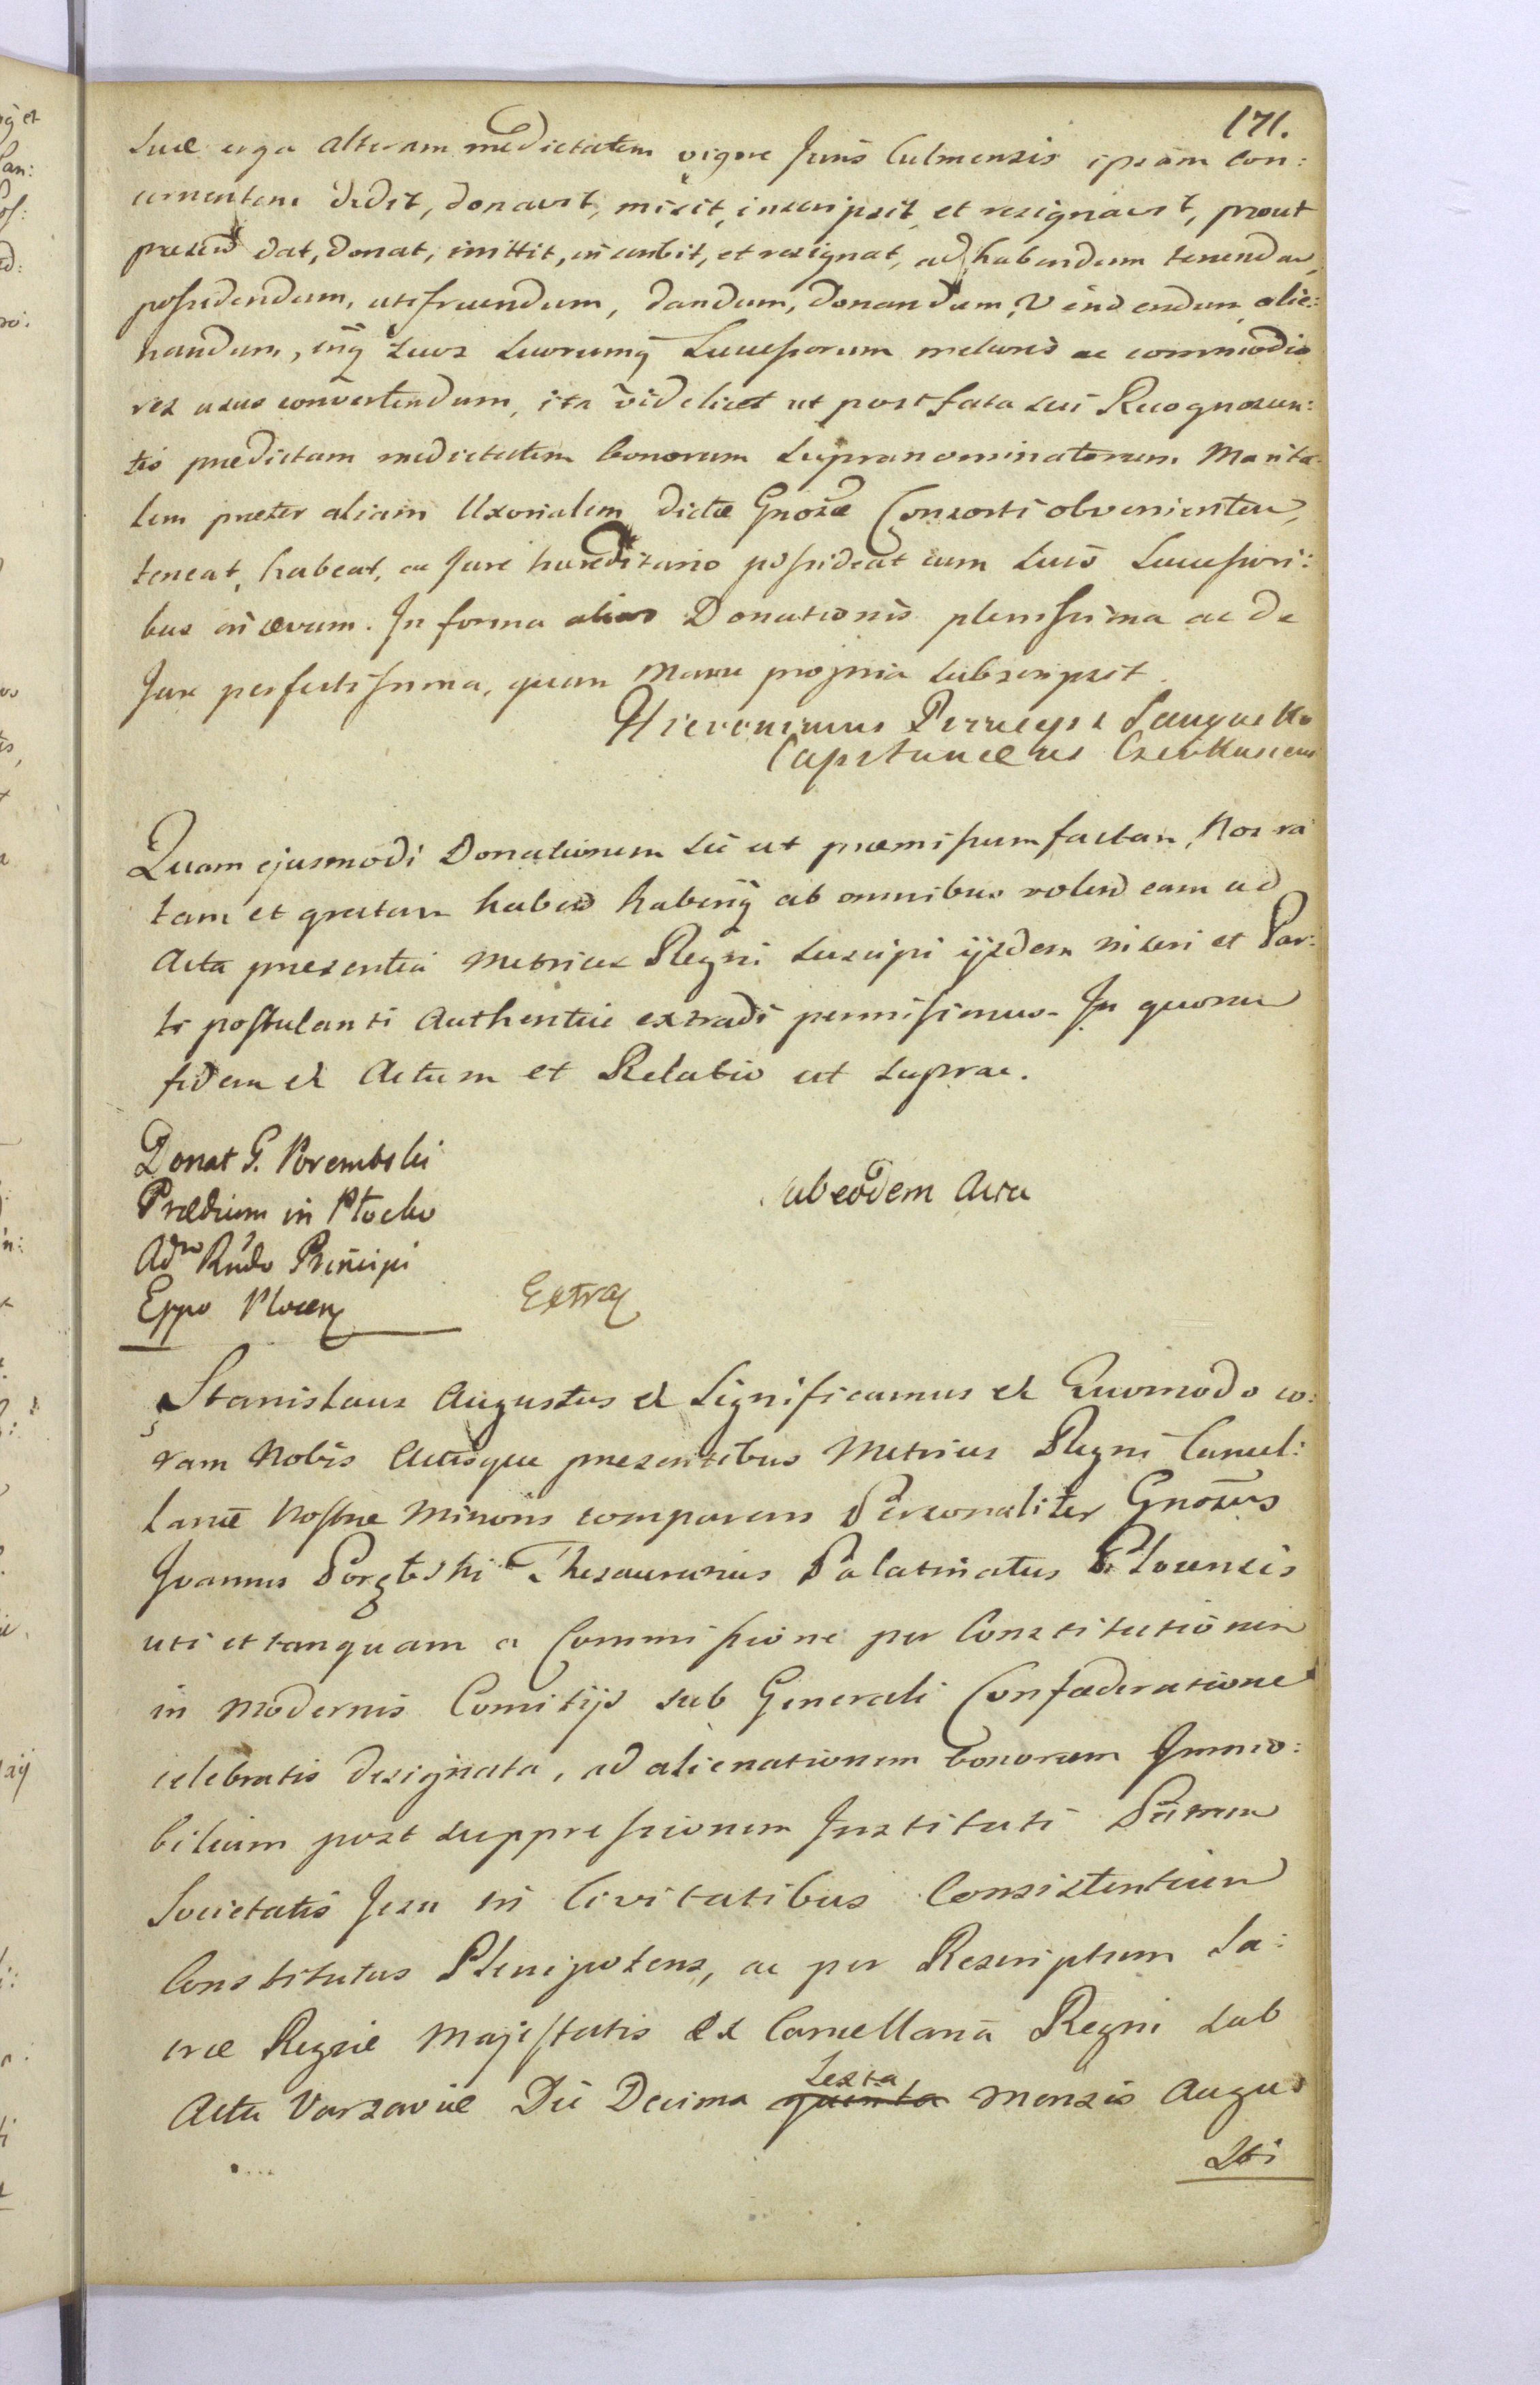 171.
suæ erga alteram medietatem vigore Juris Culmensis ipsam con:
cernentem dedit, donavit, misit, inscripsit, et resignavit, prout
præsen̄ dat, donat, immittit, inscribit, et resignat, ad habendum tenendum,
possidendum, utifruendum, dandum, donandum, vendendum, alie:
nandum, inq̄ suos suorumq̄ Successorum meliores ac commodio
res usus convertendum, ita videlicet ut post fata sui Recognoscen:
tis prædictam medietatem bonorum supranominatorum Marita:
lem præter aliam Uxorialem dictæ Gnosæ Consorti obvenientem,
teneat, habeat, ac Jure hæreditario possideat cum suis Successori:
bus in ævum. In forma alias Donationis plenissima ac de
Jure perfectissima, quam Manu propria subscripsit.
Hieronimus Sanguszko
Capitaneus
Quam ejusmodi Donationem sic ut præmissum factam, Nos ra
tam et gratam haben̄ haberiq̄ ab omnibus volen̄ eam ad
Acta præsentia Metrices Regni suscipi ijsdem inseri et Par:
ti postulanti Authentice extradi permisimus. In quorum
fidem et Actum et Relatio ut supra.
Donat G. Porembski
Prædium in Płocko
Adm̄ Rn̄do Principi
Eppo Plocen̄
Sub eodem Actu
Extra
Stanislaus Augustus et Significamus et Quomodo co:
ram Nobis Actisque præsentibus Metrices Regni Cancel:
lariæ Nostræ Minoris comparens Personaliter Gnosus
Joannes Porębski Thesaurarius Palatinatus Plocensis
uti et tanquam a Commissione per Constitutionem
in modernis Comitijs sub Generali Confæderatione
celebratis designata, ad alienationem bonorum Immo:
bilium post suppressionem Instituti
Societatis Jesu in Civitatibus Consistentium
Constitutus Plenipotens, ac per Rescriptum Sa:
cræ Regiæ Majestatis ex Cancellaria Regni sub
Actu Varsaviæ Die Decima quinta Sexta Mensis Augus
sti